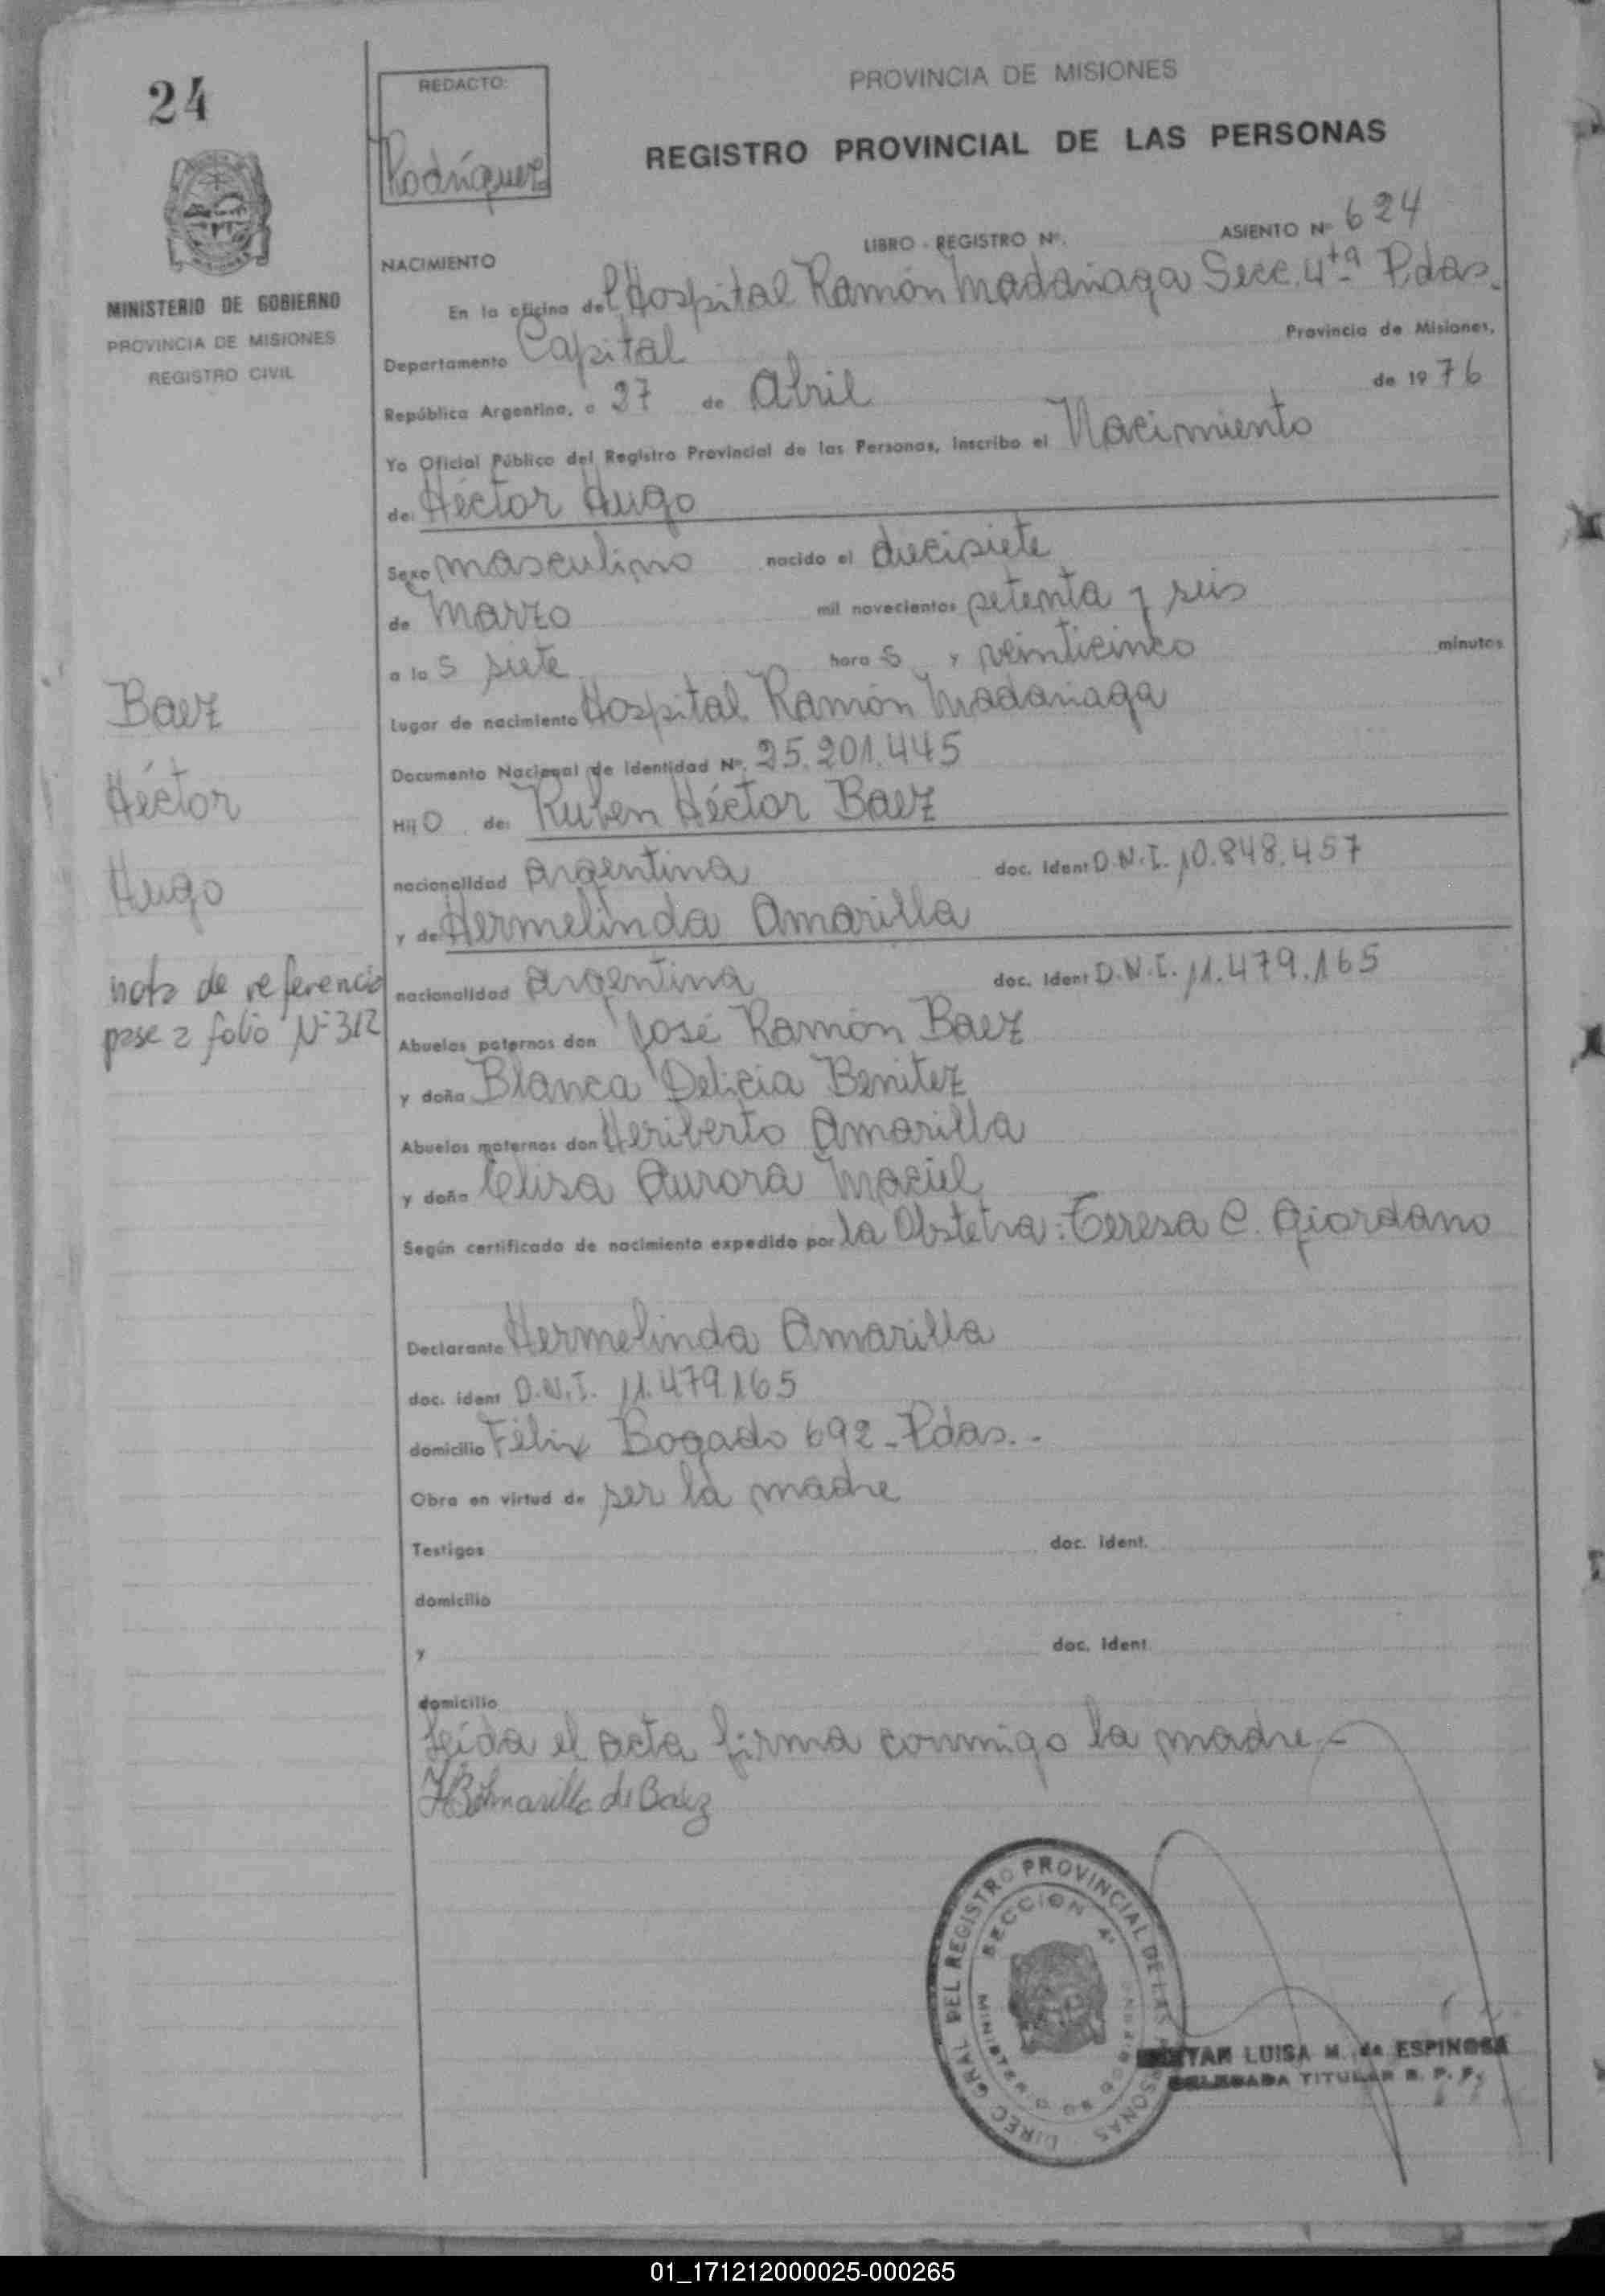 24
REDACTO:
Rodríguez
PROVINCIA DE MISIONES
REGISTRO PROVINCIAL DE LAS PERSONAS
MINISTERIO DE GOBIERNO
PROVINCIA DE MISIONES
REGISTRO CIVIL
LIBRO - REGISTRO Nº. ASIENTO Nº 624
NACIMIENTO
En la oficina del Hospital Ramón Madariaga Secc. 4ta Pdas.
Departamento Capital Provincia de Misiones,
República Argentina, a 27 de Abril de 1976
Yo Oficial Público del Registro Provincial de las Personas, inscribo el Nacimiento
de: Héctor Hugo
Sexo masculino nacido el diecisiete
de Marzo mil novecientos setenta y seis
a las siete horas y veinticinco minutos
Lugar de nacimiento Hospital Ramón Madariaga
Documento Nacional de Identidad Nº. 25.201.445
Hijo de: Ruben Héctor Baez
nacionalidad argentina doc. Ident D.N.I. 10.848.457
y de Hermelinda Amarilla
nacionalidad argentina doc. Ident D.N.I. 11.479.165
Abuelos paternos don José Ramón Baez
y doña Blanca Delicia Benitez
Abuelos maternos don Heriberto Amarilla
y doña Elisa Aurora Maciel
Según certificado de nacimiento expedido por la Obstetra: Teresa C. Giordano
Declarante Hermelinda Amarilla
doc. ident D.N.I. 11.479.165
domicilio Félix Bogado 692 - Pdas. -
Obra en virtud de ser la madre
Testigos doc. Ident.
domicilio
y doc. Ident.
domicilio
Leída el acta firma conmigo la madre -
Amarilla de Baez
Baez
Héctor
Hugo
nota de referencia
pase a folio Nº 312
DIREC. GRAL DEL REGISTRO PROVINCIAL DE LAS PERSONAS
SECCION 4ª
MINISTERIO DE GOBIERNO
LUISA M. de ESPINOSA
DELEGADA TITULAR R. P. P.
01_171212000025-000265